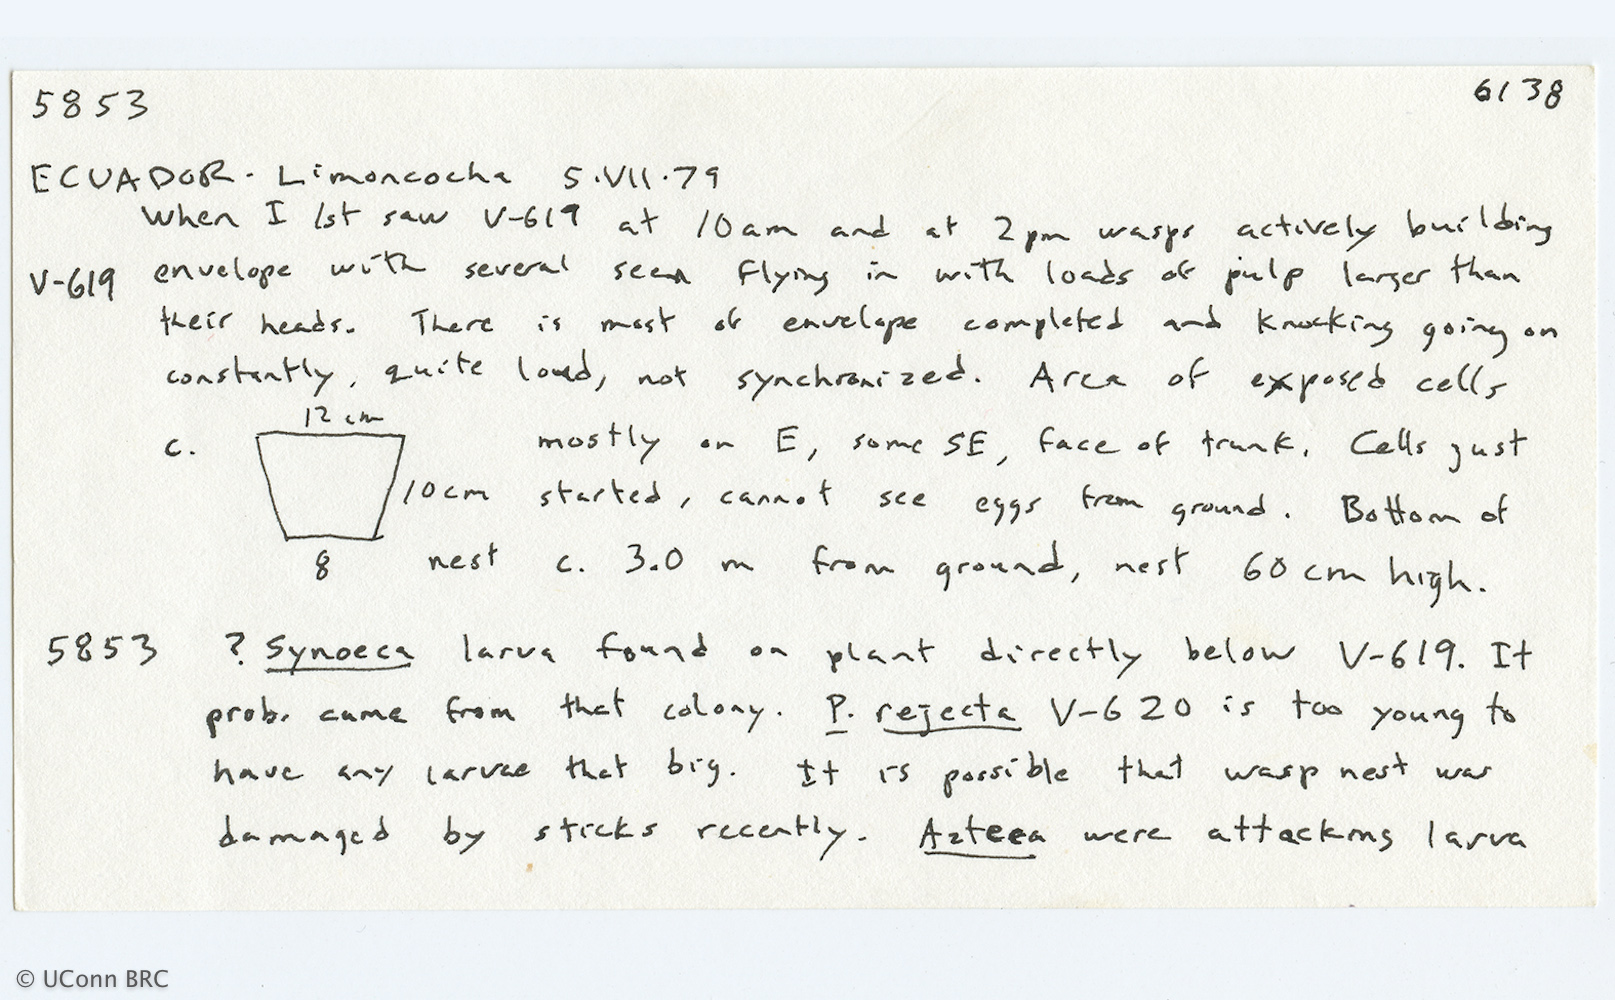 5853 6138
ECUADOR. Limoncocha 5.VII.79
When I 1st saw V-619 at 10am and at 2pm wasps actively building
V-619 envelope with several seen flying in with loads of pulp larger than
their heads. There is most of envelope completed and knocking going on
constantly, quite loud, not synchronized. Area of exposed cells
12 cm
c. mostly on E, some SE, face of trunk. Cells just
10cm started, cannot see eggs from ground. Bottom of
8 nest c. 3.0 m from ground, nest 60 cm high.
5853 ? Synoeca larva found on plant directly below V-619. It
prob. came from that colony. P. rejecta V-620 is too young to
have any larvae that big. It is possible that wasp nest was
damaged by sticks recently. Azteca were attacking larva
© UConn BRC